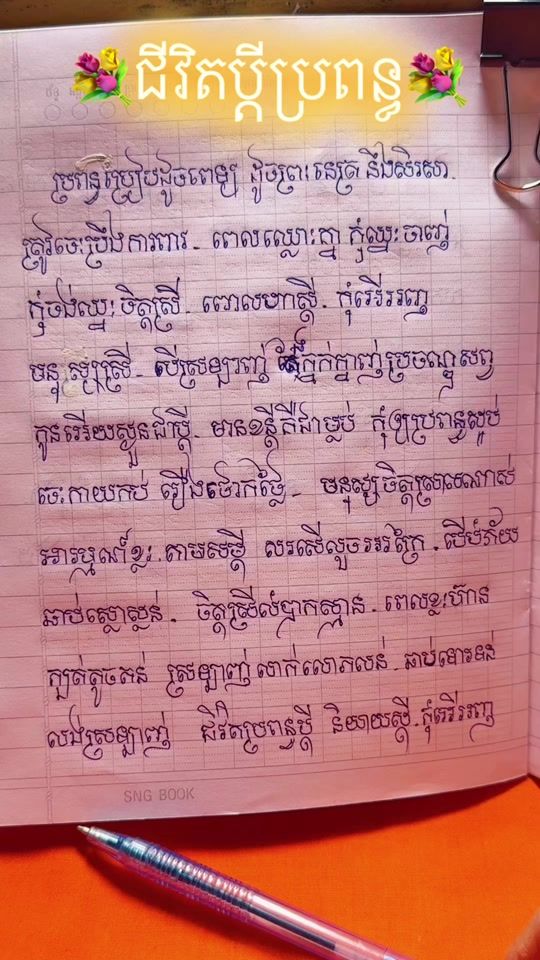 ជីវិតប្ដីប្រពន្ធ
ប្រពន្ធប្រៀបដូចពេទ្យ ដូចព្រះនេត្រ និងសិរសា.
ត្រូវចេះប្រឹងការពារ. ពេលឈ្លោះគ្នា កុំឈ្នះចាញ់
កុំចង់ឈ្នះចិត្តស្រី. ពោលពាក្យស្ដី. កុំអើអញ
មនុស្សស្រី. បើស្រឡាញ់ ក្នក់ក្នាញ់ប្រចណ្ឌសព្វ
កូនអើយស្ងួនជាប្ដី. មានខន្តីគឺជាម្លប់ កុំឲ្យប្រពន្ធស្អប់
ចេះកាយកប់ រឿងថោកថ្លៃ. មនុស្សចិត្តស្រាលណាស់
អារម្មណ៍ខ្លះ តាមសម្ដី លរលើលួចអរក្រៃ. បើបំភ័យ
ឆាប់ស្លោស្លន់. ចិត្តស្រីលំបាកស្មាន. ពេលខ្លះហ៊ាន
ក្បត់តូចតន់ ស្រឡាញ់ទាក់លោភលន់. ឆាប់ទោរទន់
លង់ស្រឡាញ់ ជីវិតប្រពន្ធប្ដី និយាយស្ដី. កុំអើអញ
SNG BOOK